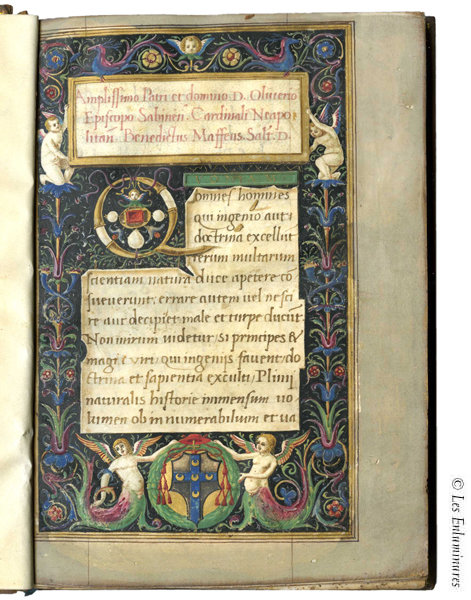 Amplissimo Patri et domino D. Oliverio
Episcopo Sabinen. Cardinali Neapo
litañ. Benedictus Maffeus. Salt. D.
Omnes homines
qui ingenio aut
doctrina excellũt
rerum multarum
scientiam natura duce apetere cõ
sueverunt, errare autem vel nesci
re aut decipi et male et turpe ducũt.
Non mirum videtur, si principes &
magi viri, qui ingeniis favent, do
ctrina et sapientia exculti, Plinii
naturalis historie immensum vo
lumen ob innumerabilium et va
© Les Enluminures